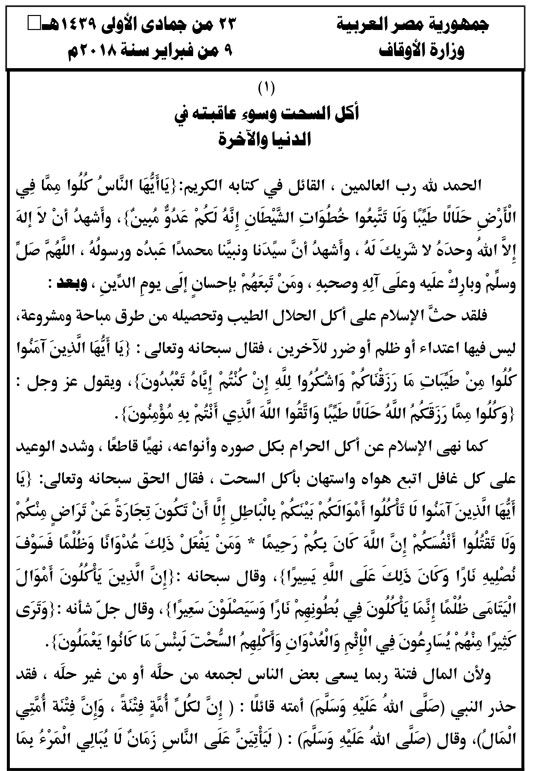 جمهورية مصر العربية
٢٣ من جمادى الأولى ١٤٣٩هـ
وزارة الأوقاف
٩ من فبراير سنة ٢٠١٨م
(١)
أكل السحت وسوء عاقبته في
الدنيا والآخرة
الحمد لله رب العالمين ، القائل في كتابه الكريم:{يَاأَيُّهَا النَّاسُ كُلُوا مِمَّا فِي
الْأَرْضِ حَلَالًا طَيِّبًا وَلَا تَتَّبِعُوا خُطُوَاتِ الشَّيْطَانِ إِنَّهُ لَكُمْ عَدُوٌّ مُبِينٌ}، وأشهدُ أنْ لاَ إلهَ
إلاَّ اللهُ وحدَهُ لا شريكَ لَهُ ، وأشهدُ أنَّ سيِّدَنا ونبيَّنا محمدًا عَبدُه ورسولُهُ ، اللَّهُمَّ صَلِّ
وسلِّمْ وبارِكْ علَيه وعلَى آلِهِ وصحبِهِ ، ومَنْ تَبِعَهُمْ بإحسانٍ إلَى يومِ الدِّينِ ، وبعد :
فلقد حثَّ الإسلام على أكل الحلال الطيب وتحصيله من طرق مباحة ومشروعة،
ليس فيها اعتداء أو ظلم أو ضرر للآخرين ، فقال سبحانه وتعالى : {يَا أَيُّهَا الَّذِينَ آمَنُوا
كُلُوا مِنْ طَيِّبَاتِ مَا رَزَقْنَاكُمْ وَاشْكُرُوا لِلَّهِ إِنْ كُنْتُمْ إِيَّاهُ تَعْبُدُونَ}، ويقول عز وجل :
{وَكُلُوا مِمَّا رَزَقَكُمُ اللَّهُ حَلَالًا طَيِّبًا وَاتَّقُوا اللَّهَ الَّذِي أَنْتُمْ بِهِ مُؤْمِنُونَ}.
كما نهى الإسلام عن أكل الحرام بكل صوره وأنواعه، نهيًا قاطعًا ، وشدد الوعيد
على كل غافل اتبع هواه واستهان بأكل السحت ، فقال الحق سبحانه وتعالى: {يَا
أَيُّهَا الَّذِينَ آمَنُوا لَا تَأْكُلُوا أَمْوَالَكُمْ بَيْنَكُمْ بِالْبَاطِلِ إِلَّا أَنْ تَكُونَ تِجَارَةً عَنْ تَرَاضٍ مِنْكُمْ
وَلَا تَقْتُلُوا أَنْفُسَكُمْ إِنَّ اللَّهَ كَانَ بِكُمْ رَحِيمًا * وَمَنْ يَفْعَلْ ذَلِكَ عُدْوَانًا وَظُلْمًا فَسَوْفَ
نُصْلِيهِ نَارًا وَكَانَ ذَلِكَ عَلَى اللَّهِ يَسِيرًا}، وقال سبحانه :{إِنَّ الَّذِينَ يَأْكُلُونَ أَمْوَالَ
الْيَتَامَى ظُلْمًا إِنَّمَا يَأْكُلُونَ فِي بُطُونِهِمْ نَارًا وَسَيَصْلَوْنَ سَعِيرًا}، وقال جلّ شأنه :{وَتَرَى
كَثِيرًا مِنْهُمْ يُسَارِعُونَ فِي الْإِثْمِ وَالْعُدْوَانِ وَأَكْلِهِمُ السُّحْتَ لَبِئْسَ مَا كَانُوا يَعْمَلُونَ}.
ولأن المال فتنة ربما يسعى بعض الناس لجمعه من حلَّه أو من غير حلَّه ، فقد
حذر النبي (صَلَّى اللهُ عَلَيْهِ وَسَلَّمَ) أمته قائلًا : ( إِنَّ لِكُلِّ أُمَّةٍ فِتْنَةً ، وَإِنَّ فِتْنَةَ أُمَّتِي
الْمَالُ)، وقال (صَلَّى اللهُ عَلَيْهِ وَسَلَّمَ) : ( لَيَأْتِيَنَّ عَلَى النَّاسِ زَمَانٌ لَا يُبَالِي الْمَرْءُ بِمَا